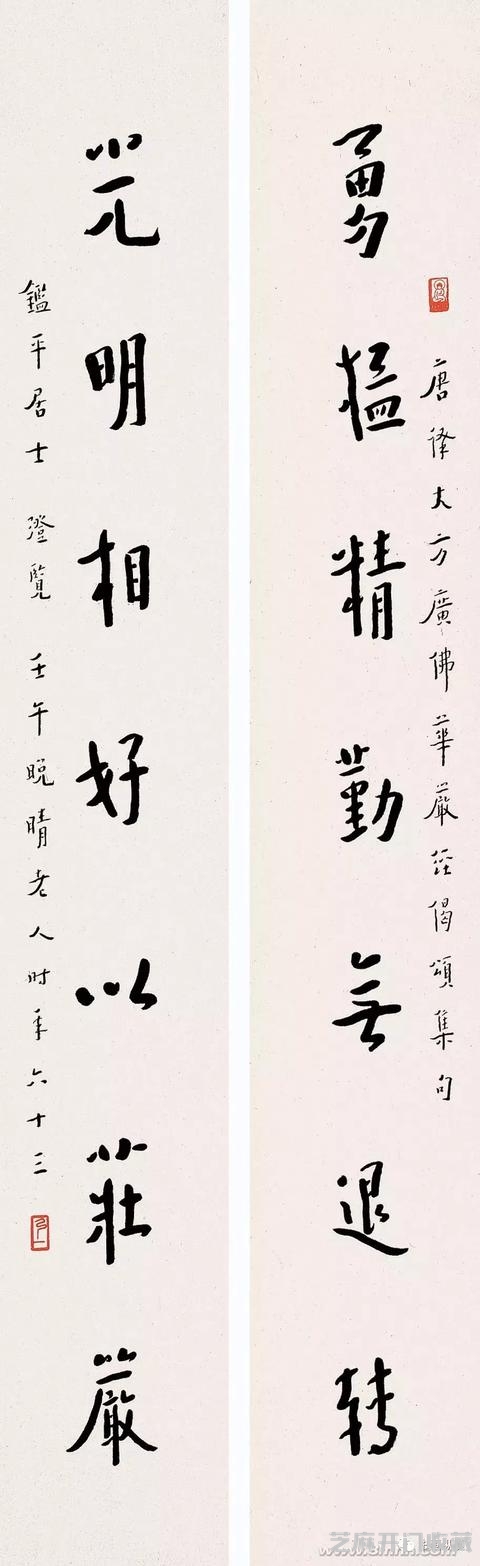 唐译大方廣佛華嚴经偈頌集句
勇猛精勤無退轉
光明相好以莊嚴
鑑平居士 澄覽 壬午晚晴老人时年六十三
芝麻开门收藏